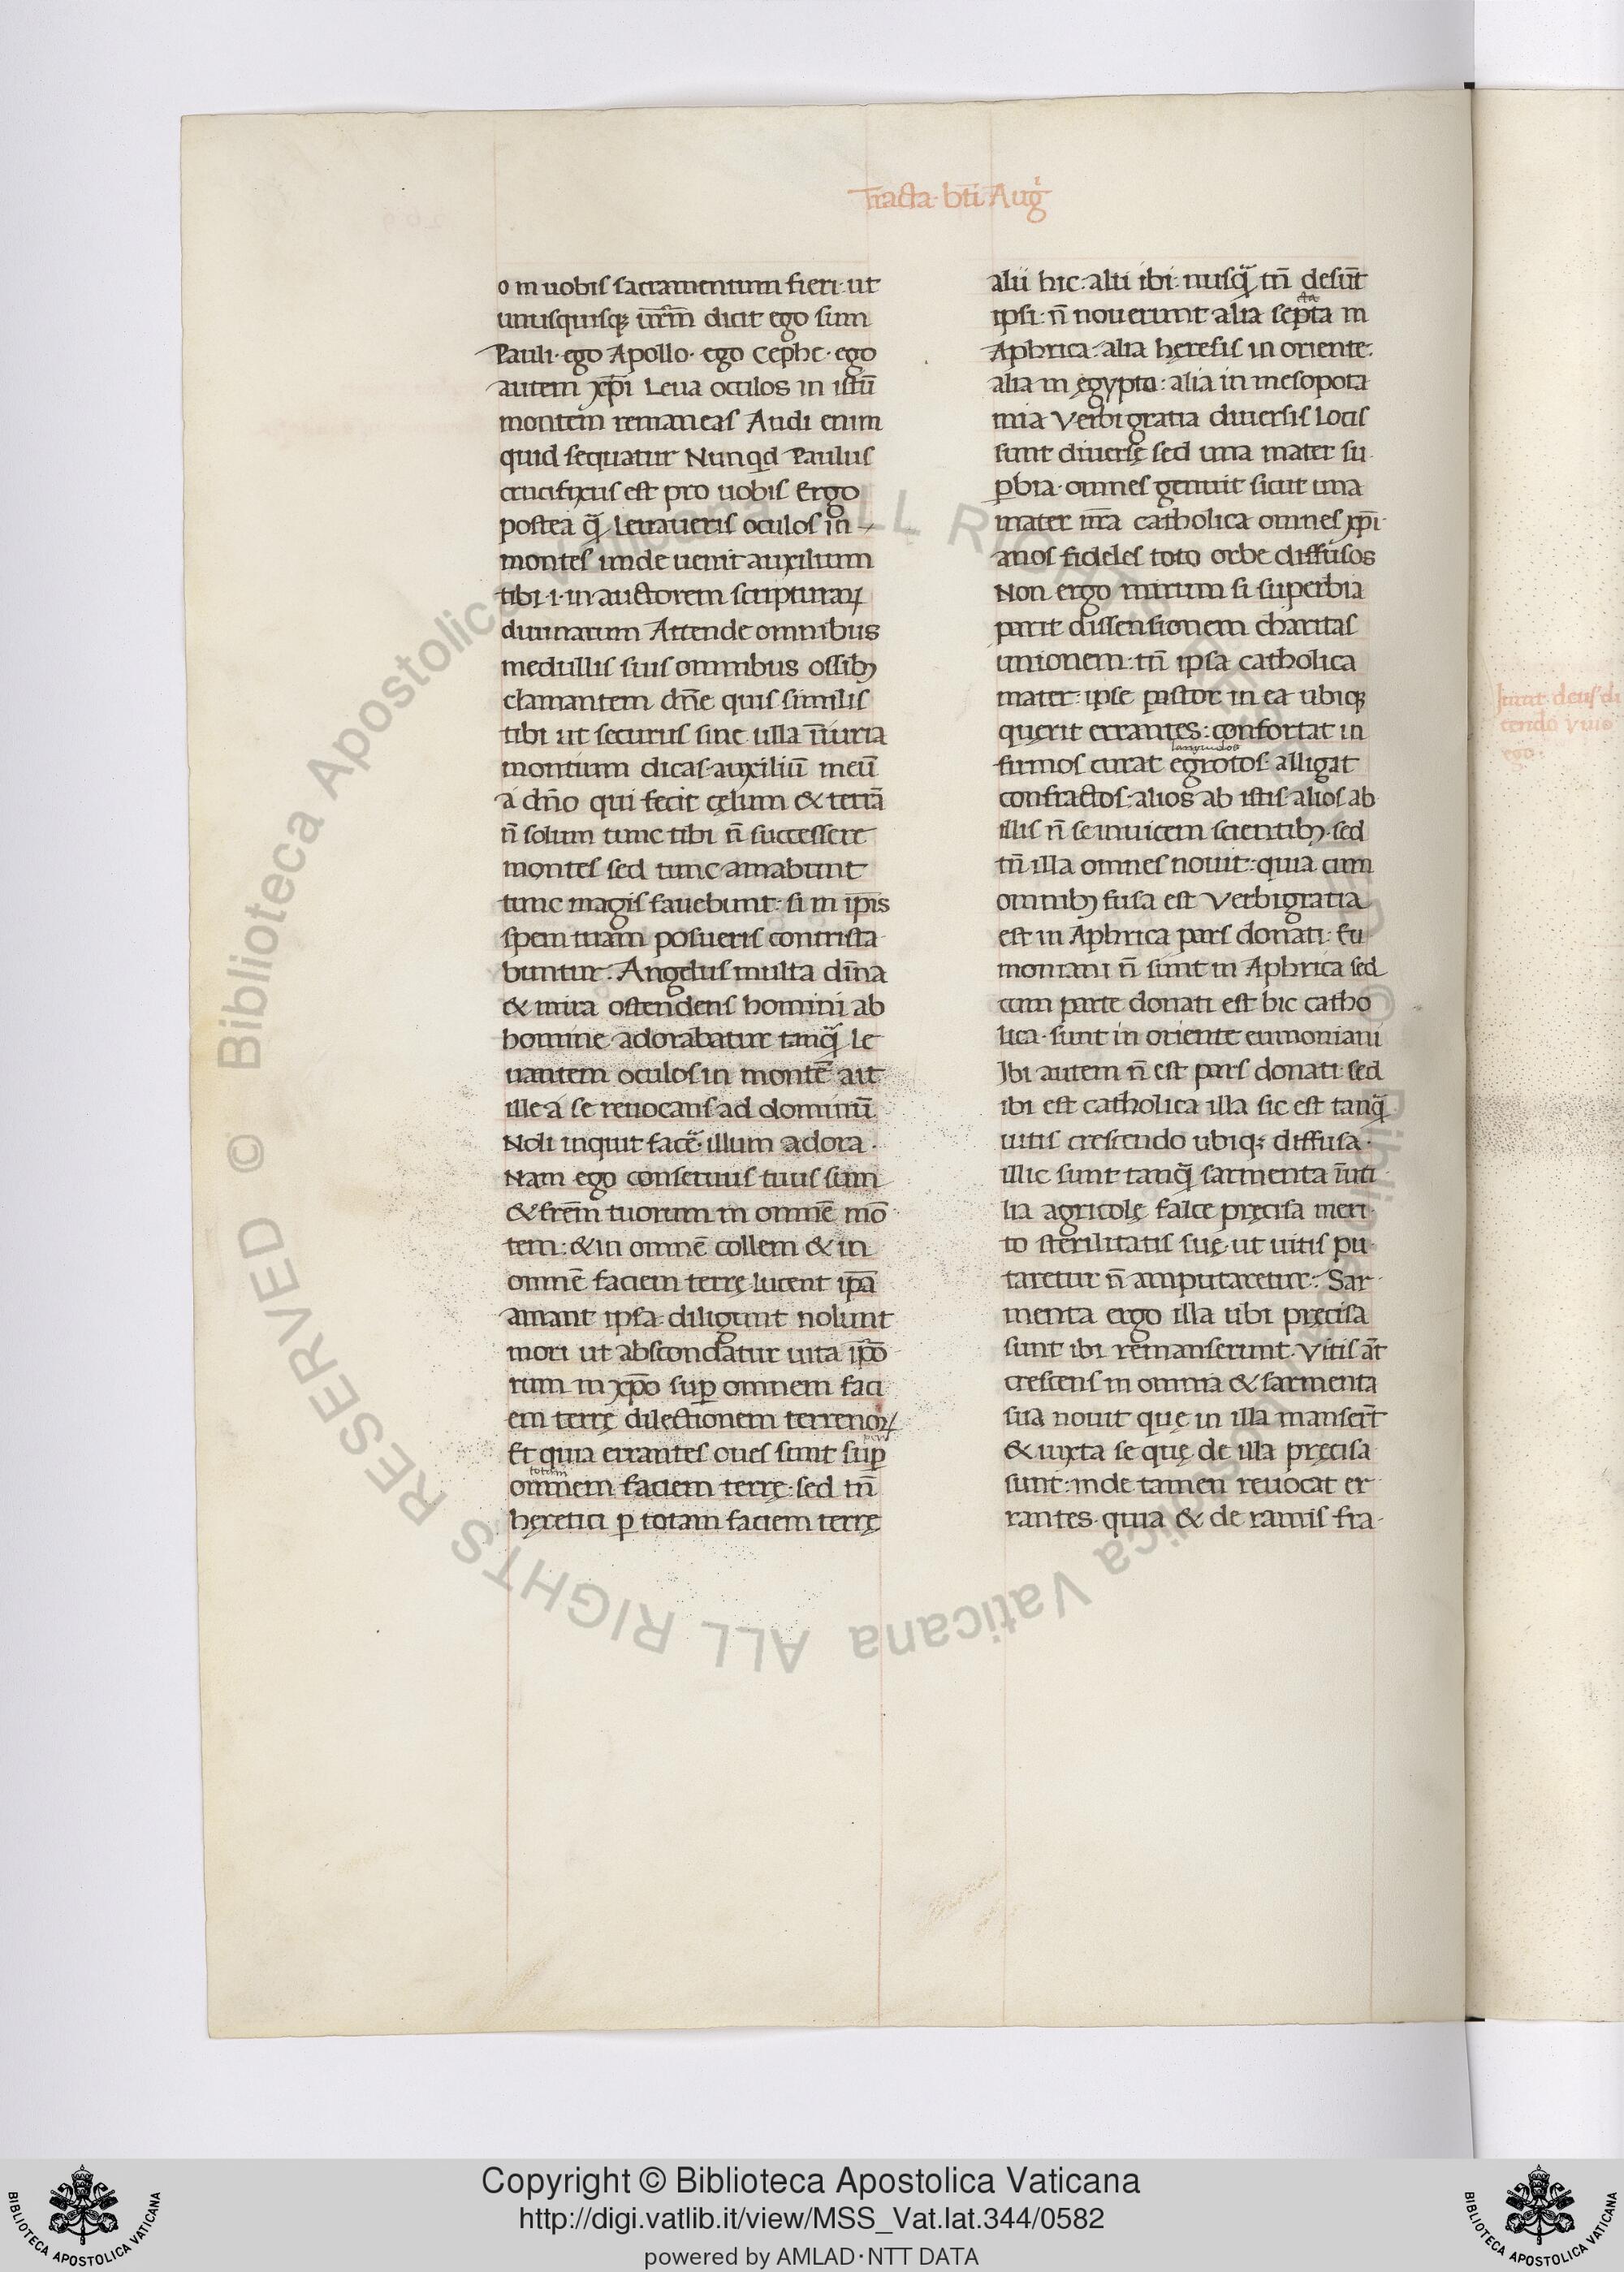 Tracta. bt̄i Augͥ
o in uobis sacramentum fieri ut
unusquisq; ur̄m̄ dicit ego sum
Pauli· ego Apollo· ego Cephe· ego
autem xp̄i Leua oculos in istū
montem remaneas Audi enim
quid sequatur Nunqd Paulus
crucifixus est pro uobis Ergo
postea q̄ leuaueris oculos in
montes unde uenit auxilium
tibi ·i· in auctorem scripturaꝝ
diuinarum Attende omnibus
medullis suis omnibus ossibꝫ
clamantem dn̄e quis similis
tibi ut securus sine ulla īiuria
montium dicas auxiliū meū
a dn̄o qui fecit cęlum & terrā
n̄ solum tunc tibi n̄ successere
montes sed tunc amabunt
tunc magis fauebunt: si in ip̄is
spem tuam posueris contrista
buntur: Angelus multa diīna
& mira ostendens homini ab
homine adorabatur tanq̄ le
uantem oculos in montē ait
ille a se reuocans ad dominū
Noli inquit facē· illum adora·
Nam ego conseruus tuus sum
& frēm tuorum in omnē mō
tem: & in omnē collem & in
omnē faciem terrę lucent ip̄a
amant ipsa diligunt nolunt
mori ut abscondatur uita ip̄o
rum in xp̄o suꝑ omnem faci
em terrę dilectionem terrenoꝝ
Et quia errantes oues sunt suꝑ
totam
omnem faciem terrę· sed tn̄
hęretici ꝑ totam faciem terrę
alii hic: alii ibi· nusq̄ tn̄ desūt
ta
ipsi: n̄ nouerunt alia septa in
Aphrica: alia hęresis in oriente:
alia in ęgypto: alia in mesopota
mia Verbi gratia diuersis locis
sunt diuersę sed una mater su
ꝑbia· omnes genuit sicut una
mater nr̄a catholica omnes xp̄i
anos fideles toto orbe diffusos
Non ergo mirum si superbia
parit dissensionem charitas
unionem: tn̄ ipsa catholica
mater: ipse pastor in ea ubiq;
quęrit errantes: confortat in
languidos
firmos curat egrotos· alligat
confractos: alios ab istis alios ab
illis n̄ se inuicem scientibꝫ· sed
tn̄ illa omnes nouit: quia cum
omnibꝫ fusa est Verbi gratia
est in Aphrica pars donati· Eu
moniani n̄ sunt in Aphrica sed
cum parte donati est hic catho
lica· sunt in oriente eumoniani
Ibi autem n̄ est pars donati· sed
ibi est catholica illa sic est tanq̄
uitis crescendo ubiq; diffusa·
illic sunt tanq̄ sarmenta īuti
lia agricolę falce pręcisa meri
to sterilitatis suę· ut uitis pu
taretur n̄ amputaretur: Sar
menta ergo illa ubi pręcisa
sunt ibi remanserunt· Vitis aūt
crescens in omnia & sarmenta
sua nouit quę in illa manserūt
& iuxta se quę de illa pręcisa
sunt: inde tamen reuocat er
rantes· quia & de ramis fra
sunt· deus di
tendo
ego·
Biblioteca Apostolica Vaticana ALL RIGHTS RESERVED © Biblioteca Apostolica Vaticana ALL RIGHTS RESERVED ©
Copyright © Biblioteca Apostolica Vaticana
http://digi.vatlib.it/view/MSS_Vat.lat.344/0582
powered by AMLAD·NTT DATA
BIBLIOTECA APOSTOLICA VATICANA
BIBLIOTECA APOSTOLICA VATICANA